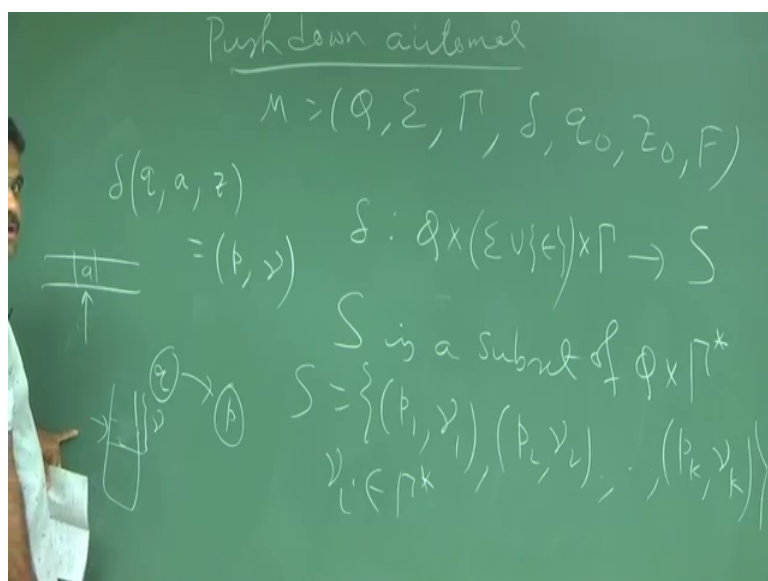 Pushdown automat
M = (Q, Σ, Γ, δ, q₀, Z₀, F)
δ(q, a, z)
= (p, γ)
δ : Q × (Σ ∪ {ε}) × Γ → S
a
S is a subset of Q × Γ*
q → p
γ
S = {(p₁, γ₁), (p₂, γ₂), . . , (pₖ, γₖ)}
γᵢ ∈ Γ*